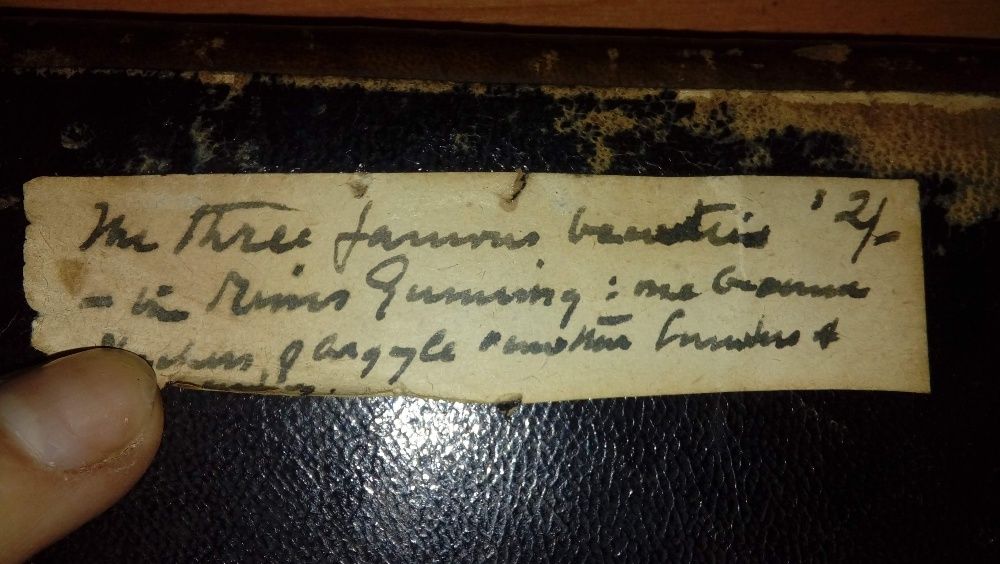 The three famous beauties ' 2/-
- the Misses Gunning : one became
Duchess of Argyle & another Countess of